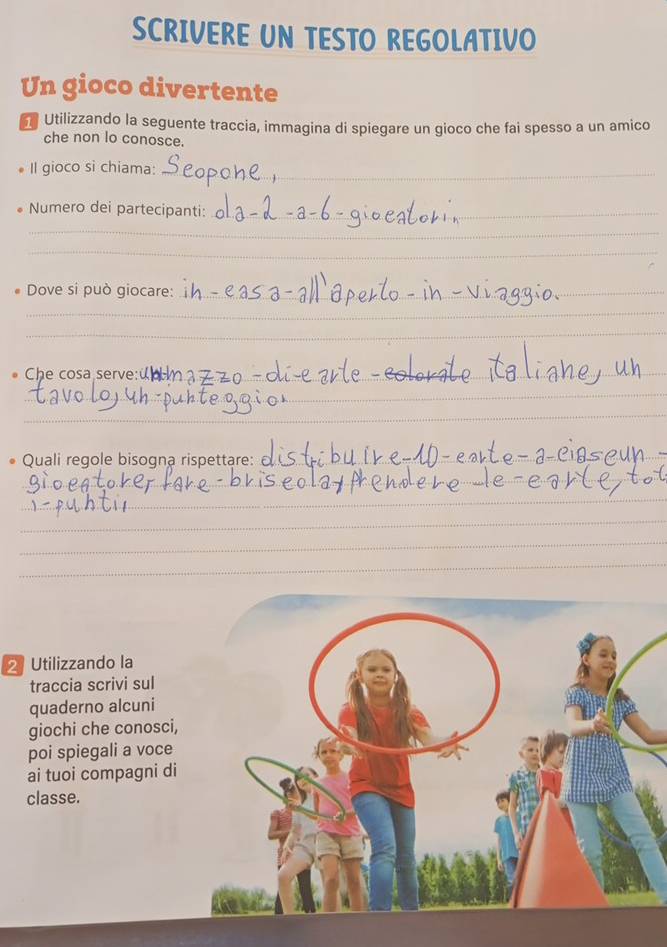 SCRIVERE UN TESTO REGOLATIVO
Un gioco divertente
1 Utilizzando la seguente traccia, immagina di spiegare un gioco che fai spesso a un amico
che non lo conosce.
• Il gioco si chiama: Scopone,
• Numero dei partecipanti: da-2-a-6-giocatori,
• Dove si può giocare: in-casa-all'aperto-in-viaggio.
• Che cosa serve: un mazzo-di-carte-colorate italiane, un
tavolo, un-punteggio.
• Quali regole bisogna rispettare: distribuire-10-carte-a-ciascun-
giocatore, fare-briscola, prendere-le-carte, tot
i-punti,
2 Utilizzando la
traccia scrivi sul
quaderno alcuni
giochi che conosci,
poi spiegali a voce
ai tuoi compagni di
classe.